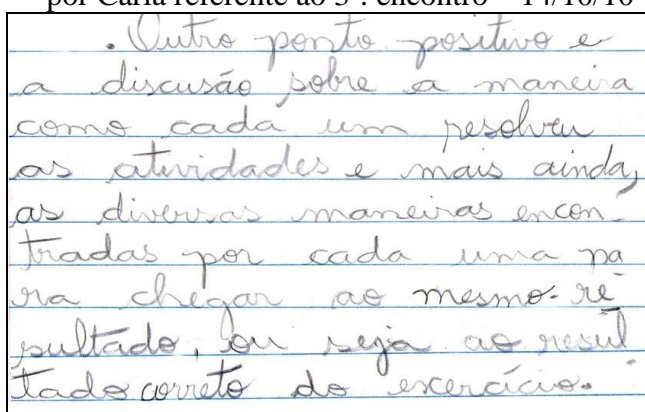 por Carla referente ao 3º. encontro – 14/10/10
. Outro ponto positivo e
a discusão sobre a maneira
como cada um resolveu
as atividades e mais ainda,
as diversas maneiras encon-
tradas por cada uma pa
ra chegar ao mesmo re-
sultado, ou seja ao resul
tado correto do exercício.